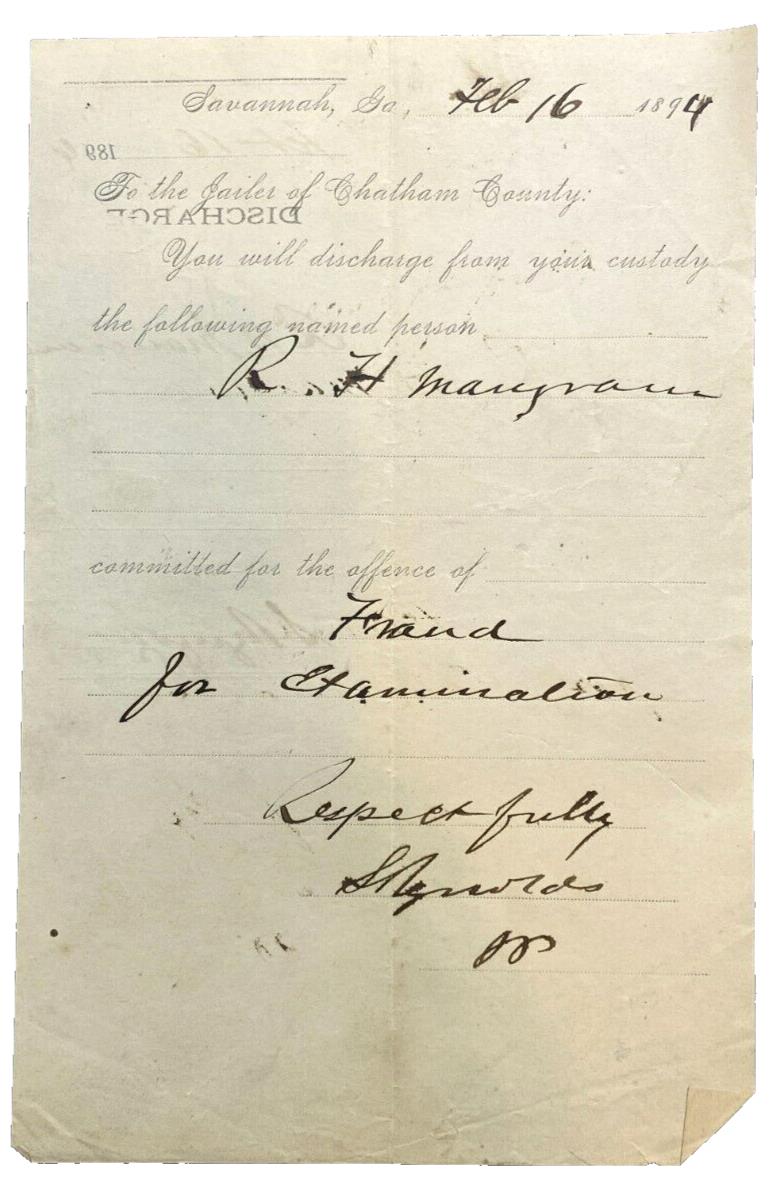 Savannah, Ga., Feb 16 1894
189
To the Jailer of Chatham County:
DISCHARGE
You will discharge from your custody
the following named person
R. H Mangram
committed for the offence of
Fraud
for Examination
Respectfully